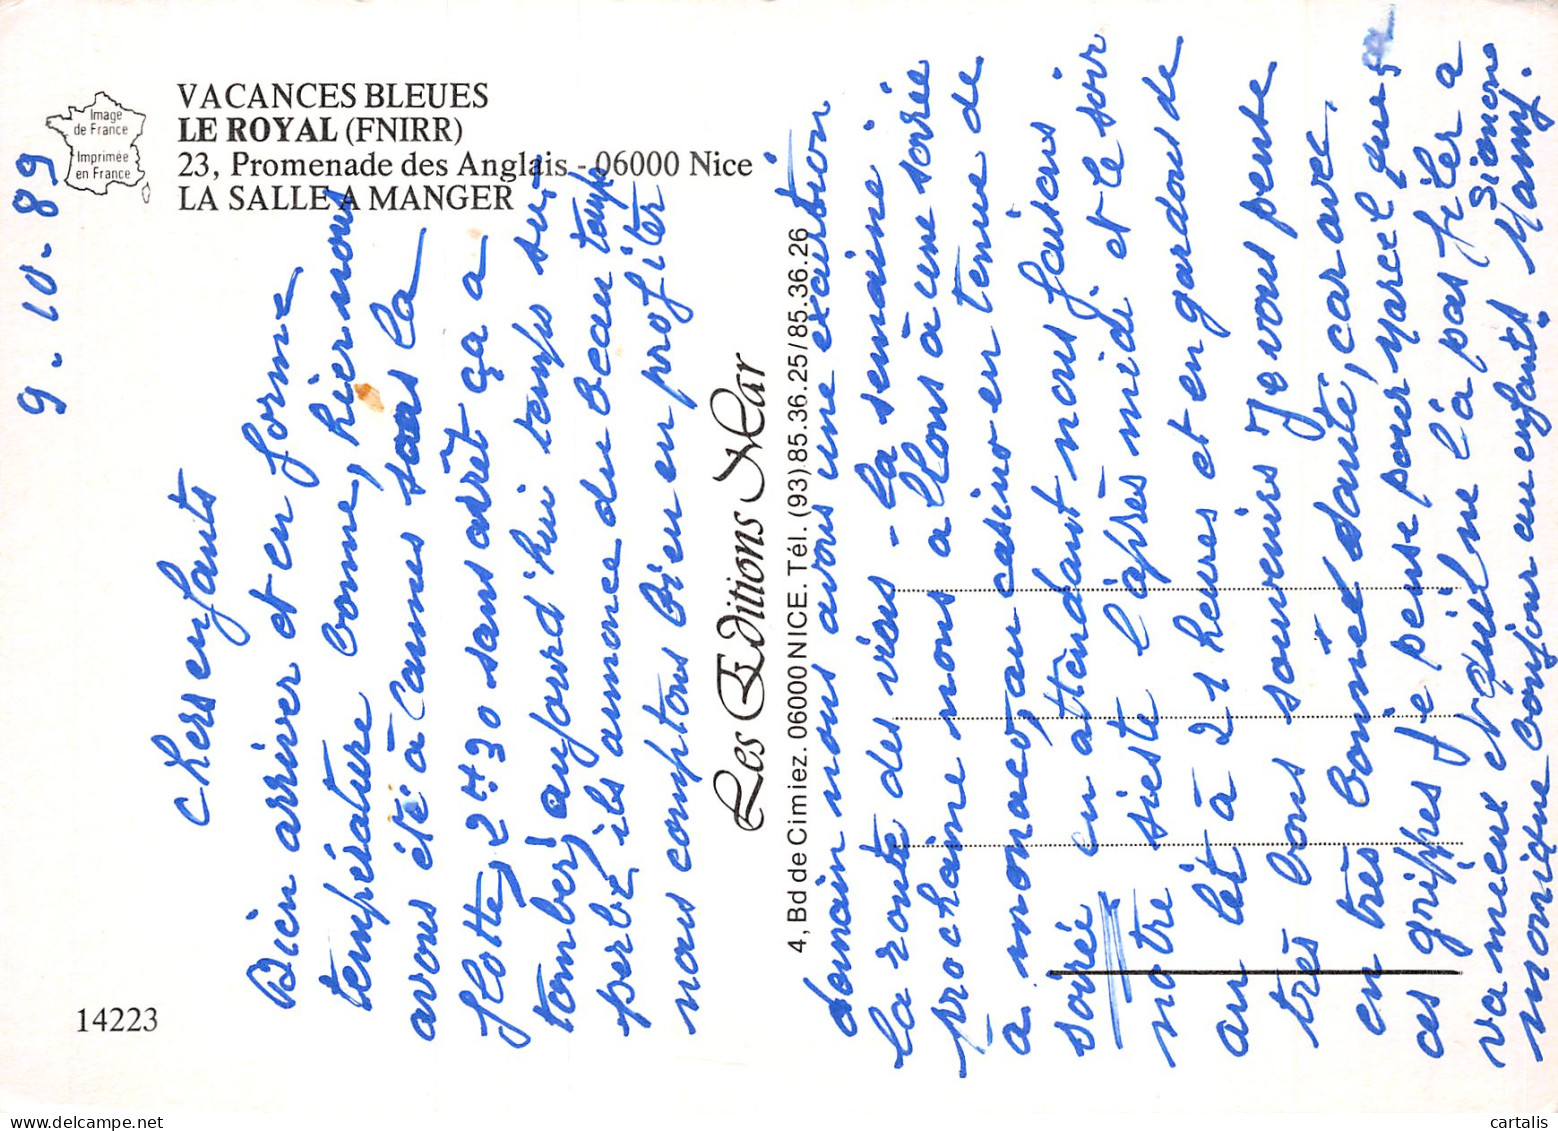 Image
de France
Imprimée
en France
VACANCES BLEUES
LE ROYAL (FNIRR)
23, Promenade des Anglais - 06000 Nice
LA SALLE A MANGER
14223
Les Editions Mar
4, Bd de Cimiez. 06000 NICE. Tél. (93) 85.36.25/85.36.26
9-10-89
Chers enfants
Bien arriver et en forme
température bonne, hier nous
avons été à Cannes sous la
flotte, 2 H 30 sans arrêt ça a
tomber, aujourd'hui temps su-
perbe ils annonce du beau temps
nous comptons bien en profiter
demain nous avons une excurtion
la route des vins - la semaine
prochaine nous allons à une soirée
à monaco, au casino en tenue de
soirée en attendant nous faisons
notre sieste l'après midi et le soir
au lèt à 21 heures et en gardons de
très bons souvenirs Je vous pense
en très bonnes santé, car avec
ces grippes je pense pour Marcel que
va mieux et quil ne l'a pas filer a Simone
monique bonjour au enfants Mamy.
cartalis